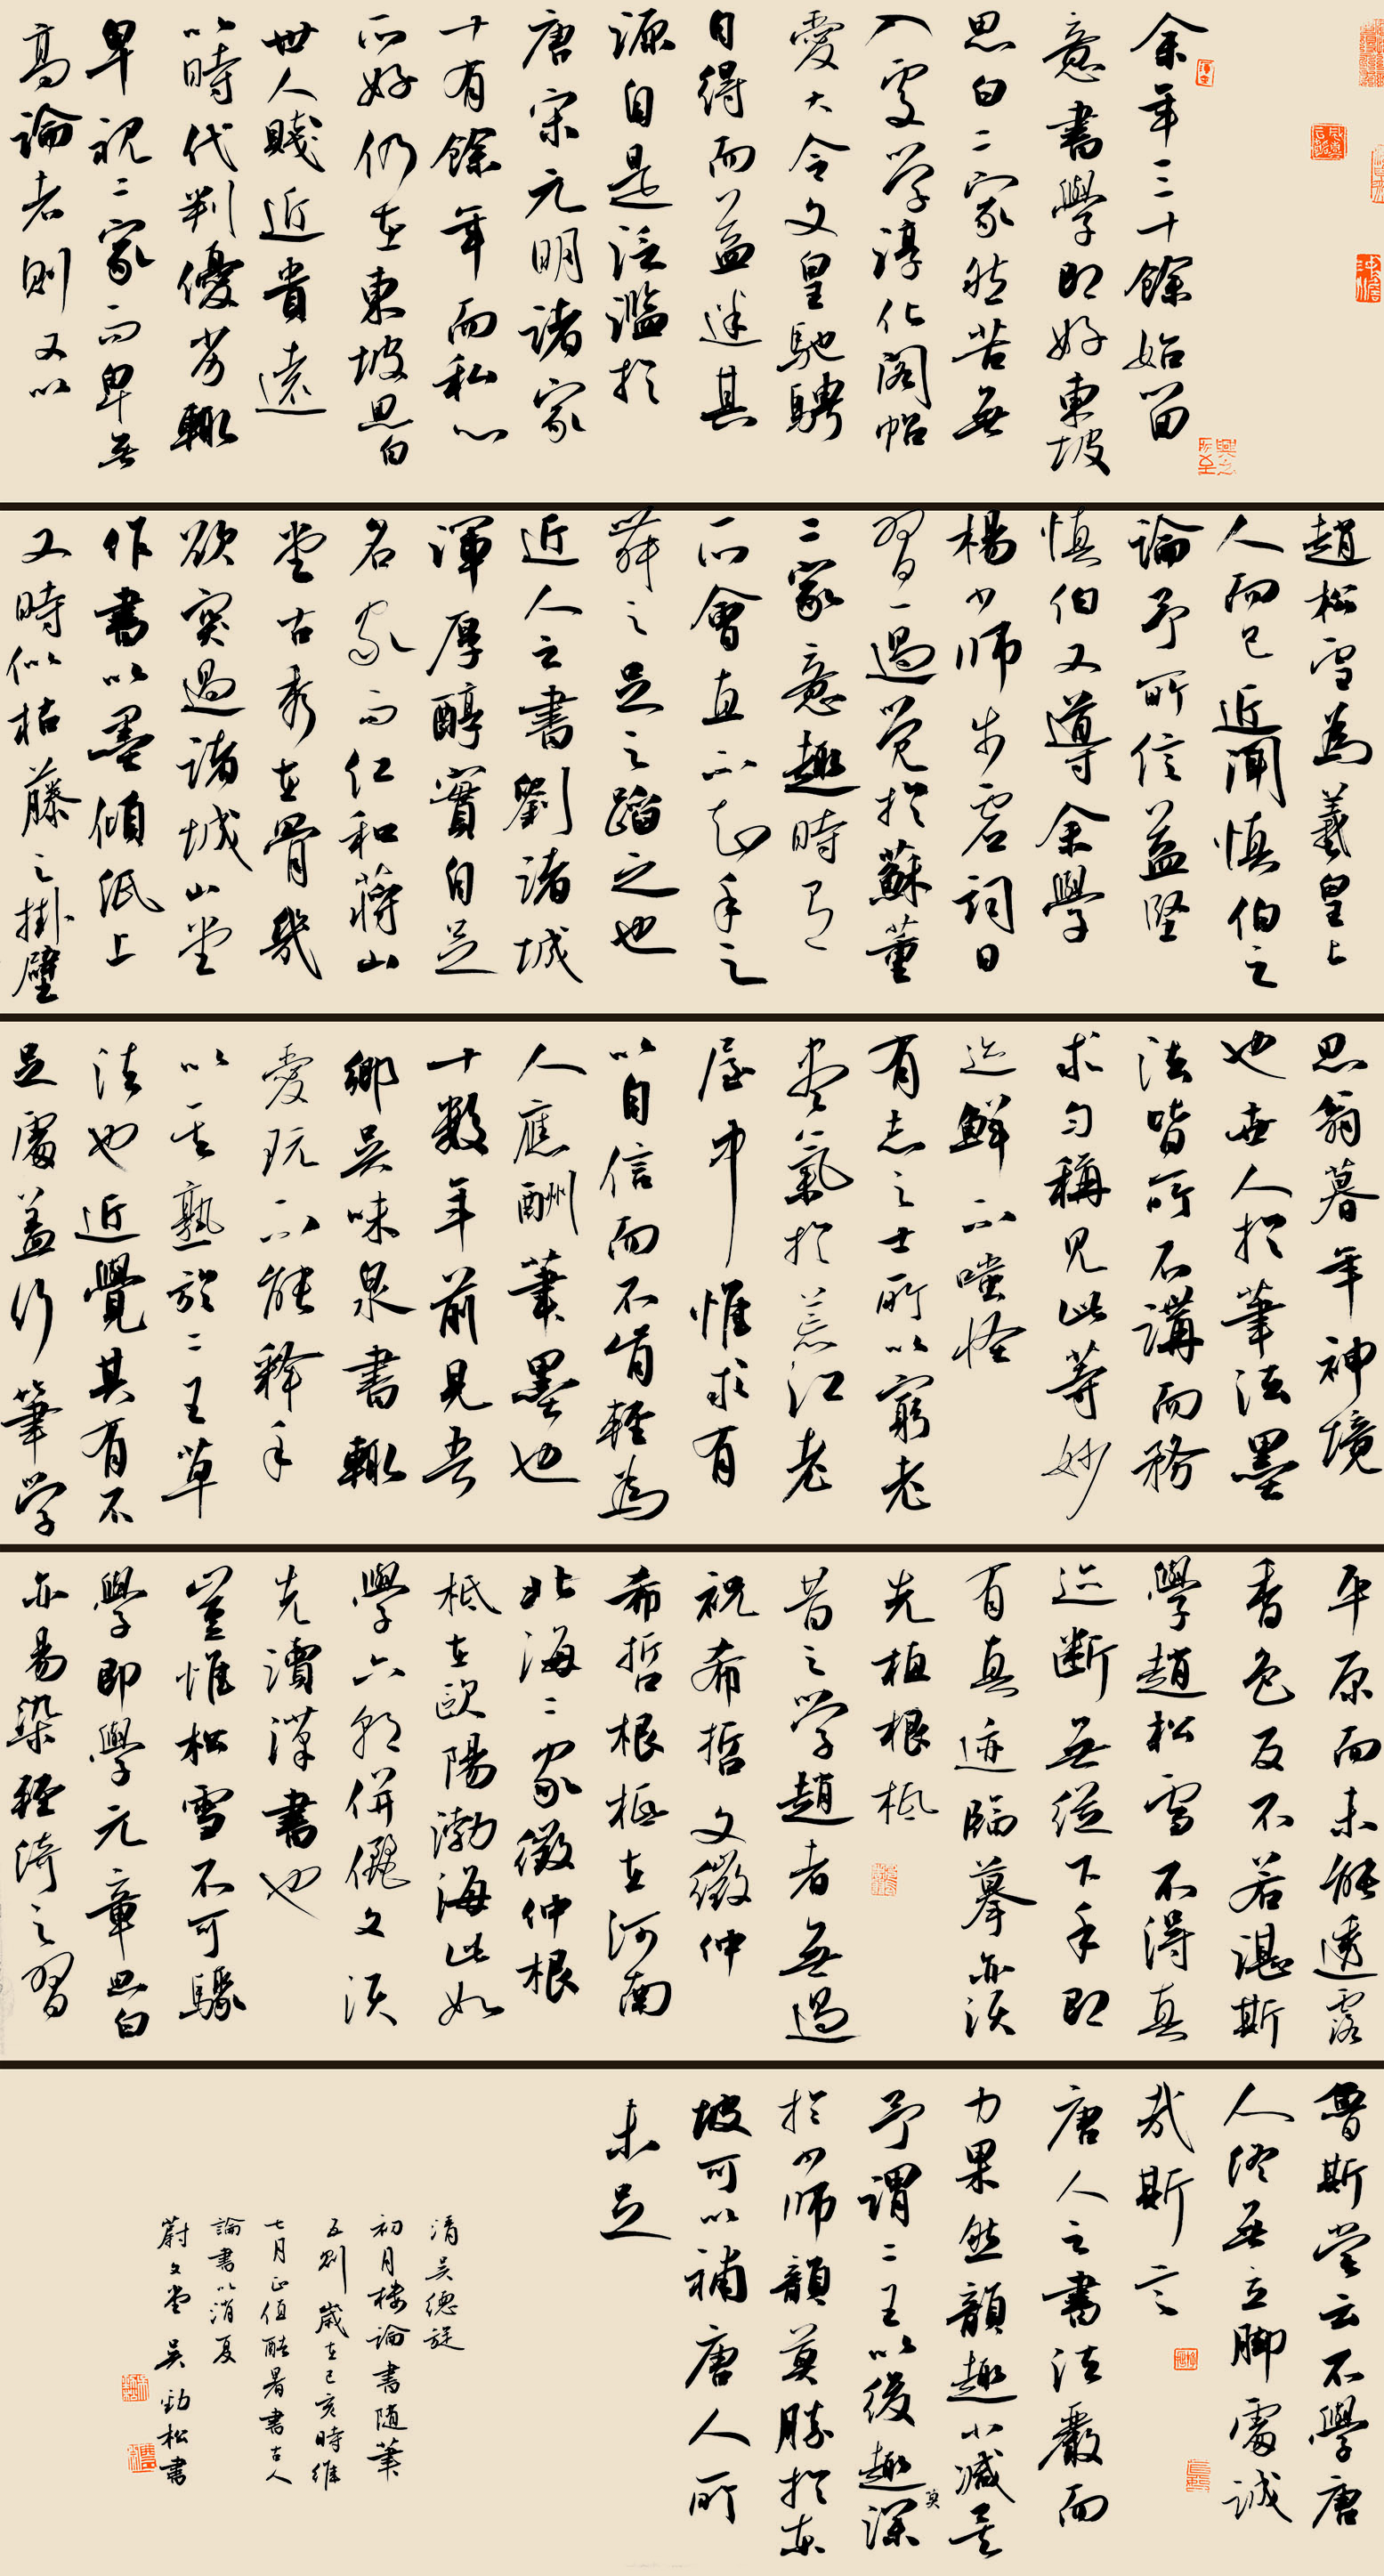 余年三十餘始留
意書學即好東坡
思白二家然苦無
入處學淳化閣帖
愛大令文皇馳騁
自得而益迷其
源自是泛濫於
唐宋元明諸家
十有餘年而私心
所好仍在東坡思白
世人賤近貴遠
以時代判優劣輒
卑視二家而卑無
高論者則又以
趙松雪為羲皇上
人而已近聞慎伯之
論予所信益堅
慎伯又導余學
楊少師步虛詞日
習一過覺於蘇董
二家意趣時有
所會直不知手之
舞之足之蹈之也
近人之書劉諸城
渾厚醇實自足
名家而仁和蔣山
堂古秀在骨幾
欲突過諸城山堂
作書以墨傾紙上
又時似枯藤之掛壁
思翁暮年神境
也世人於筆法墨
法皆所不講而務
求勻稱見此等妙
迹鮮不嗤怪
有志之士所以窮老
盡氣於荒江老
屋中惟求有
以自信而不肯輕為
人應酬筆墨也
十數年前見吾
鄉吳味泉書輒
愛玩不能釋手
以其熟於二王草
法也近覺其有不
足處蓋行筆學
平原而未能透露
香色反不若湛斯
學趙松雪不得真
迹斷無從下手即
有真迹臨摹亦須
先植根柢
昔之學趙者無過
祝希哲文徵仲
希哲根柢在河南
北海二家徵仲根
柢在歐陽渤海此如
學六朝儷文須
先讀漢書也
豈惟松雪不可驟
學即學元章思白
亦易染輕綺之習
魯斯嘗云不學唐
人終無立腳處誠
哉斯言
唐人之書法嚴而
力果然韻趣小減矣
予謂二王以後趣深
莫
於少師韻莫勝於東
坡可以補唐人所
未足
清吳德旋
初月樓論書隨筆
五則歲在己亥時維
七月正值酷暑書古人
論書以消夏
蔚文堂吳勁松書